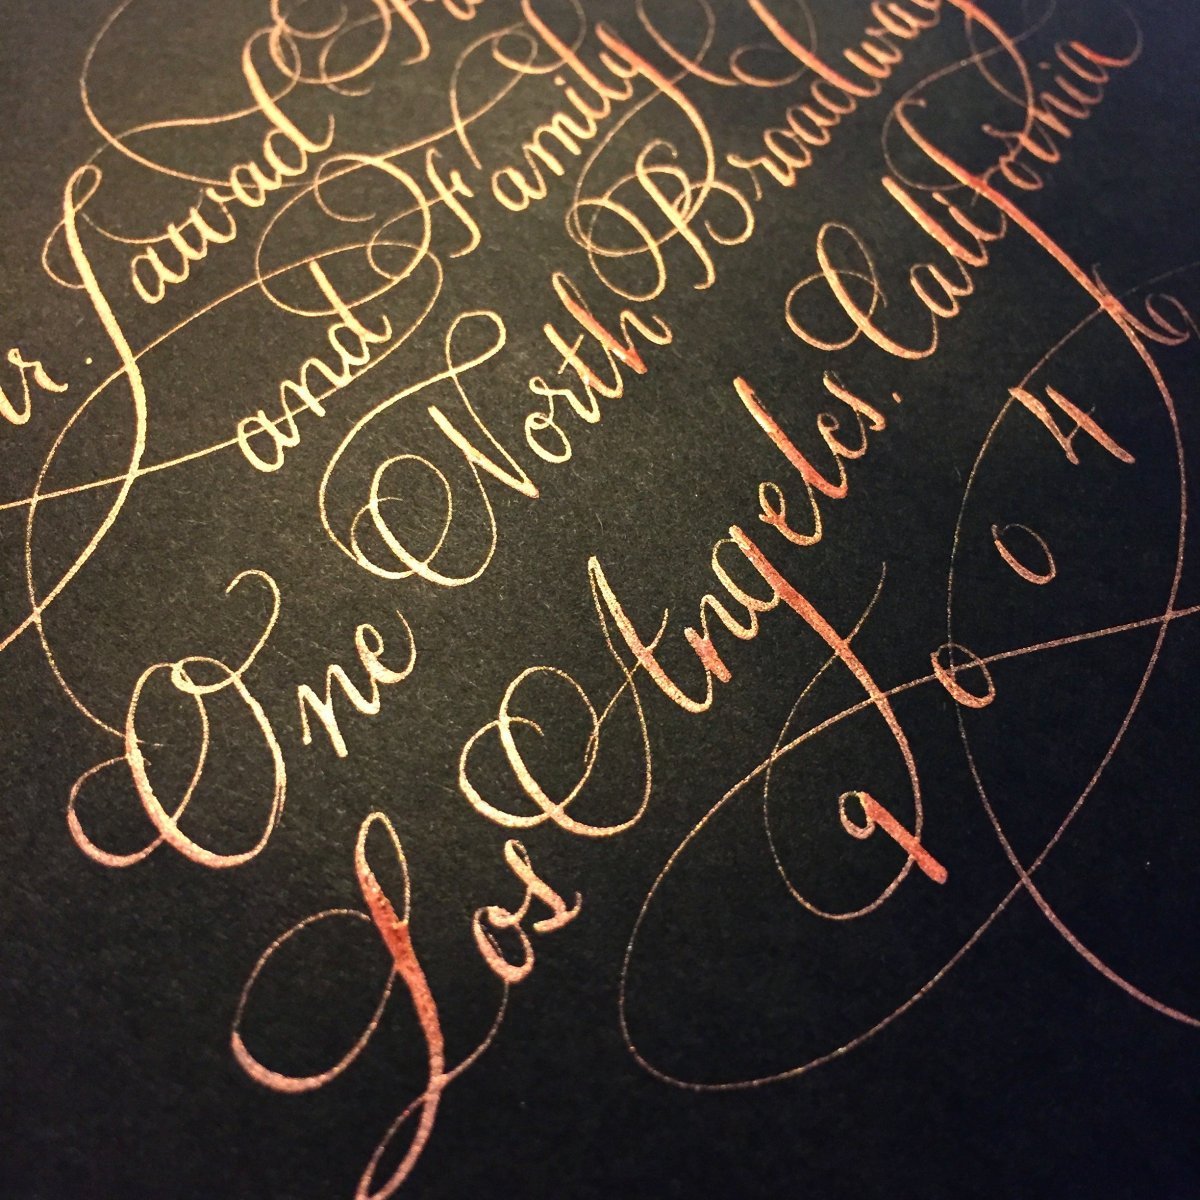 r. Jawad
and Family
One North Broadway
Los Angeles. California
90046